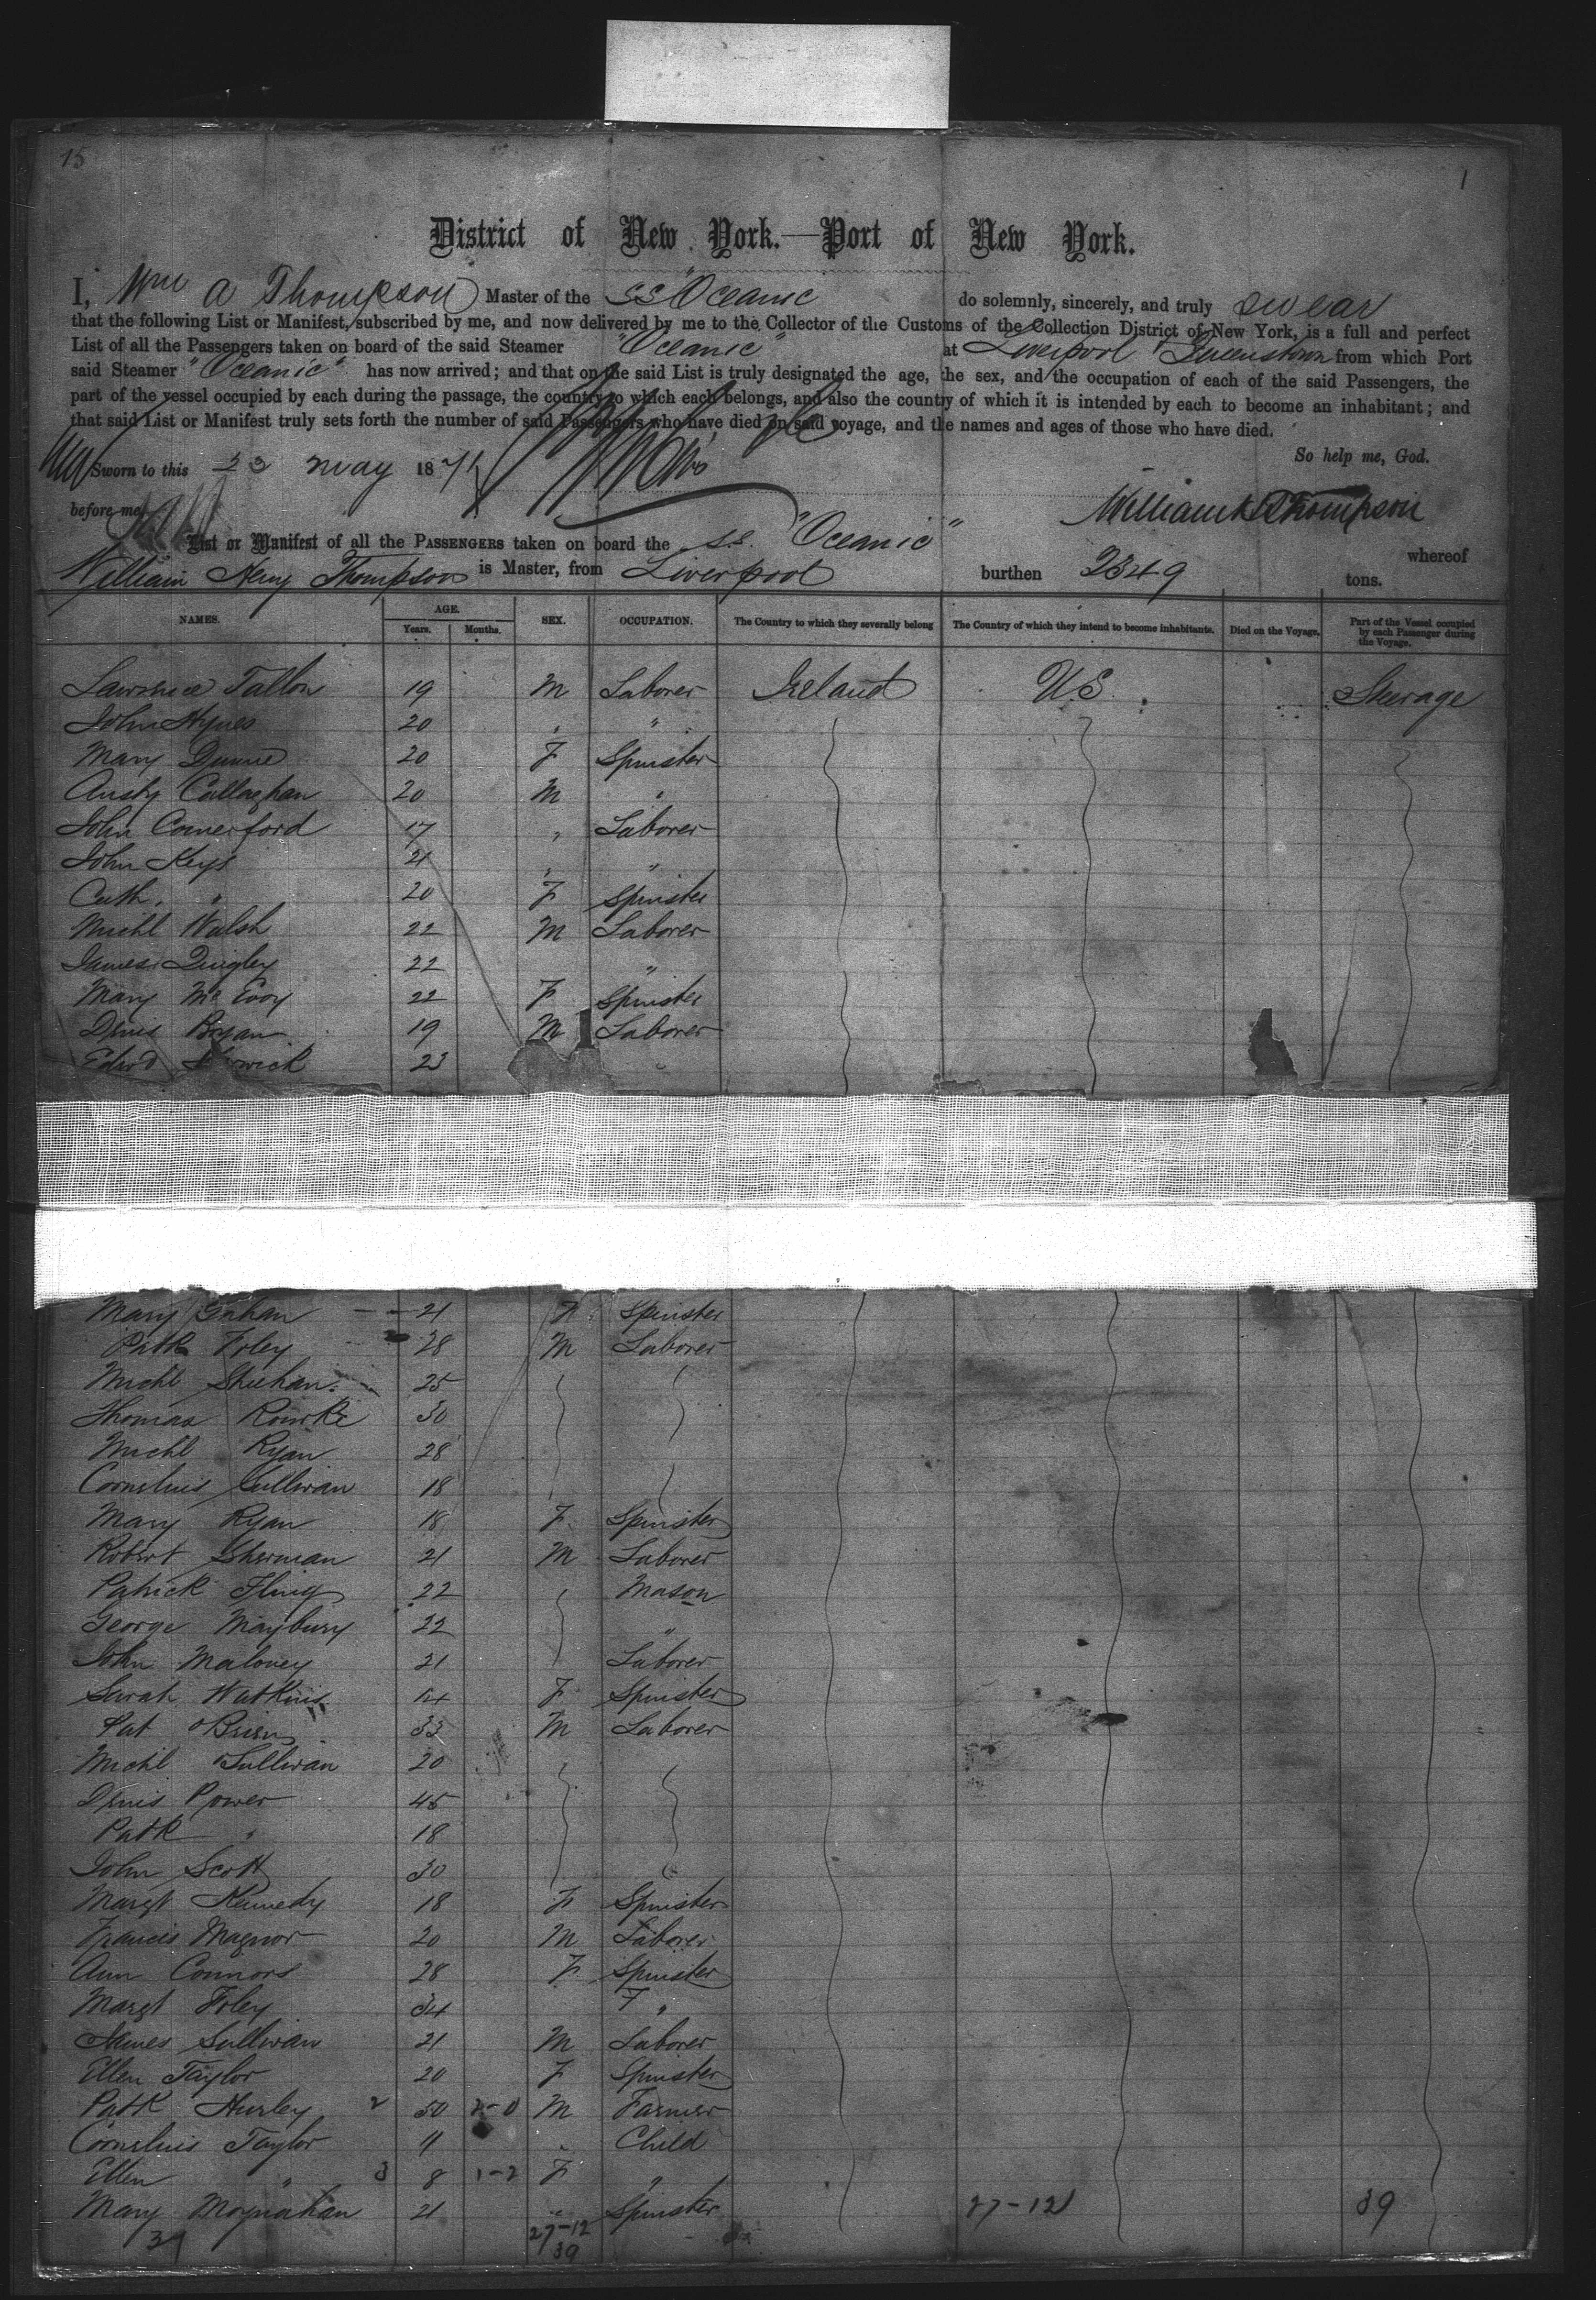 15
1
District of New York.—Port of New York.
I, Wm A Thompson Master of the SS "Oceanic do solemnly, sincerely, and truly swear
that the following List or Manifest, subscribed by me, and now delivered by me to the Collector of the Customs of the Collection District of New York, is a full and perfect
List of all the Passengers taken on board of the said Steamer "Oceanic" at Liverpool Queenstown from which Port
said Steamer "Oceanic" has now arrived; and that on the said List is truly designated the age, the sex, and the occupation of each of the said Passengers, the
part of the vessel occupied by each during the passage, the country to which each belongs, and also the country of which it is intended by each to become an inhabitant; and
that said List or Manifest truly sets forth the number of said Passengers who have died on said voyage, and the names and ages of those who have died.
So help me, God.
Sworn to this 23 May 1871
before me, William H Thompson
List or Manifest of all the PASSENGERS taken on board the s.s. "Oceanic" whereof
William Henry Thompson is Master, from Liverpool burthen 2349 tons.
NAMES. AGE. Years. Months. SEX. OCCUPATION. The Country to which they severally belong The Country of which they intend to become inhabitants. Died on the Voyage. Part of the Vessel occupied by each Passenger during the Voyage.
Lawrence Tallon 19 M Laborer Ireland U.S. Steerage
John Hynes 20 " "
Mary Dunne 20 F Spinster
Callaghan 20 M "
John Comerford 17 " Laborer
John Keys 21 " "
Cath. " 20 F Spinster
Michl Walsh 22 M Laborer
James Quigley 22 "
Mary Mc Evoy 22 F Spinster
Denis Bryan 19 M Laborer
Edwd 23 "
Mary 21 F Spinster
Patk Foley 28 M Laborer
Michl Sheehan 25
Thomas Rourke 30
Michl Ryan 28
Cornelius Sullivan 18
Mary Ryan 18 F Spinster
Robert Sherman 21 M Laborer
Patrick Fling 22 Mason
George Maybury 22 "
John Maloney 21 Laborer
Sarah Watkins 14 F Spinster
Pat OBrien 33 M Laborer
Michl OSullivan 20
Denis Power 45
Patk " 18
John Scott 30
Margt Kennedy 18 F Spinster
Francis Magnor 20 M Laborer
Ann Connors 28 F Spinster
Margt Foley 34 F "
James Sullivan 21 M Laborer
Ellen Taylor 20 F Spinster
Patk Hurley 2 50 2-0 M Farmer
Cornelius Taylor 11 " Child
Ellen " 3 8 1-2 F "
Mary Moynahan 21 " Spinster 27-12 39
39 27-12
39